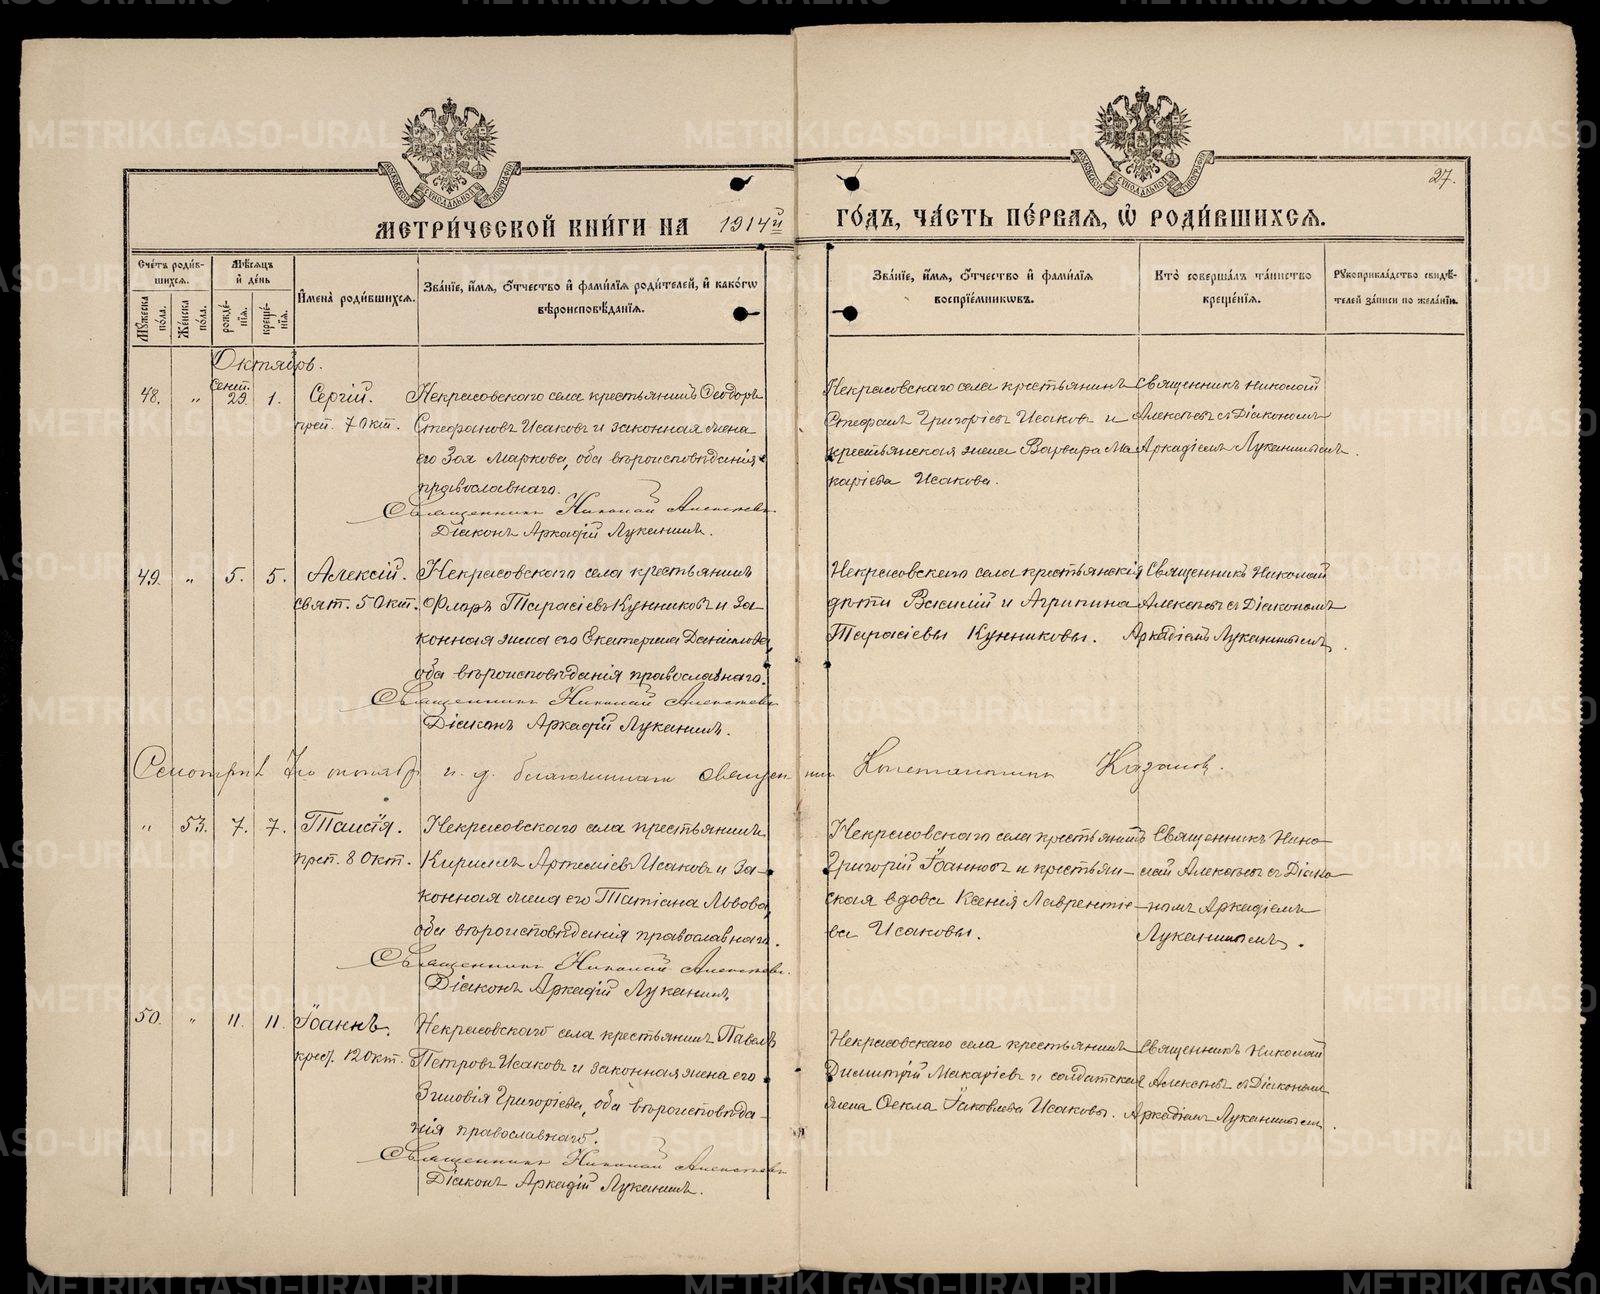 27.
МЕТРИ́ЧЕСКОЙ КНИ́ГИ НА 1914й ГО́ДЪ, ЧА́СТЬ ПЕ́РВАЯ, Ѡ҆ РОДИ́ВШИХСЯ.
Сче́тъ роди́вшихся.
Му́жеска по́ла.
Же́нска по́ла.
Мѣ́сяцъ и҆ де́нь
рожде́нія.
креще́нія.
И҆мена̀ роди́вшихся.
Зва́ніе, и҆́мя, ѻ҆́тчество и҆ фамі́лія роди́телей, и҆ како́гѡ
вѣроисповѣ́данія.
Зва́ніе, и҆́мя, ѻ҆́тчество и҆ фамі́лія
воспрїе́мникѡвъ.
Кто̀ соверша́лъ та́инство
креще́нія.
Рꙋкоприкла́дство свидѣ́-
телей за́писи по жела́нію.
Октябрь.
48. " Сент. 29. 1. Сергій.
преп. 7 Окт.
Некрасовскаго села крестьянинъ Ѳеодоръ
Стефановъ Исаковъ и законная жена
его Зоя Маркова, оба вѣроисповѣданія
православнаго.
Священникъ Николай Алексѣевъ
Діаконъ Аркадій Луканинъ.
Некрасовскаго села крестьянинъ
Стефанъ Григоріевъ Исаковъ и
крестьянская жена Варвара Ма-
каріева Исакова.
Священникъ Николай
Алексѣевъ съ Діакономъ
Аркадіемъ Луканинымъ.
49. " 5. 5. Алексій.
свят. 5 Окт.
Некрасовскаго села крестьянинъ
Флоръ Тарасіевъ Кунниковъ и за-
конная жена его Екатерина Даніилова,
оба вѣроисповѣданія православнаго.
Священникъ Николай Алексѣевъ
Діаконъ Аркадій Луканинъ.
Некрасовскаго села крестьянскія
дѣти Василій и Агрипина
Тарасіевы Кунниковы.
Священникъ Николай
Алексѣевъ съ Діакономъ
Аркадіемъ Луканинымъ.
и. д. благочиннаго священникъ Константинъ
" 53. 7. 7. Таисія.
преп. 8 Окт.
Некрасовскаго села крестьянинъ
Кириллъ Артеміевъ Исаковъ и за-
конная жена его Татіана Львова,
оба вѣроисповѣданія православнаго.
Священникъ Николай Алексѣевъ.
Діаконъ Аркадій Луканинъ.
Некрасовскаго села крестьянинъ
Григорій Іоанновъ и крестьян-
ская вдова Ксенія Лаврентіе-
ва Исаковы.
Священникъ Нико-
лай Алексѣевъ съ Діако-
номъ Аркадіемъ
Луканинымъ.
50. " 11. 11. Іоаннъ.
12 Окт.
Некрасовскаго села крестьянинъ Павелъ
Петровъ Исаковъ и законная жена его
Зиновія Григоріева, оба вѣроисповѣда-
нія православнаго.
Священникъ Николай Алексѣевъ
Діаконъ Аркадій Луканинъ.
Некрасовскаго села крестьянинъ
Димитрій Макаріевъ и солдатская
жена Ѳекла Іаковлева Исаковы.
Священникъ Николай
Алексѣевъ съ Діакономъ
Аркадіемъ Луканинымъ.
METRIKI.GASO-URAL.RU